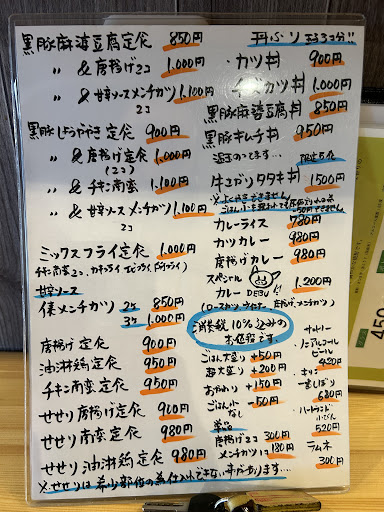 黒豚麻婆豆腐定食 850円
〃 &唐揚げ2コ 1,000円
〃 &甘辛ソースメンチカツ 1,100円
2コ
黒豚しょうがやき定食 900円
〃 &唐揚げ定食 1,000円
(2コ)
〃 &チキン南蛮 1,100円
〃 &甘辛ソースメンチカツ 1,100円
2コ
ミックスフライ定食 1,000円
甘辛ソース
メンチカツ 2ケ 850円
3ケ 1,000円
唐揚げ定食 900円
油淋鶏定食 950円
チキン南蛮定食 950円
せせり唐揚げ定食 900円
せせり南蛮定食 980円
せせり油淋鶏定食 980円
※せせりは希少部位の為仕入れできない事があります…
丼ぶり
カツ丼 900円
カツ丼 1,000円
黒豚麻婆豆腐丼 850円
黒豚キムチ丼 950円
限定5食
牛コガリタタキ丼 1500円
カレーライス 780円
カツカレー 980円
唐揚げカレー 980円
スペシャル
カレー DEBU 1,200円
(ロースカツ, 唐揚げ, メンチカツ)
消費税10%込みの
お値段です。
ごはん大盛り +50円
超大盛り +200円
おかわり +150円
ごはん小 -50円
なし
単品
唐揚げ2コ 300円
メンチカツ1コ 180円
サントリー
ノンアルコール
ビール
420円
キリン
一番しぼり
680円
ハートランド
小びん
520円
ラムネ
300円
450